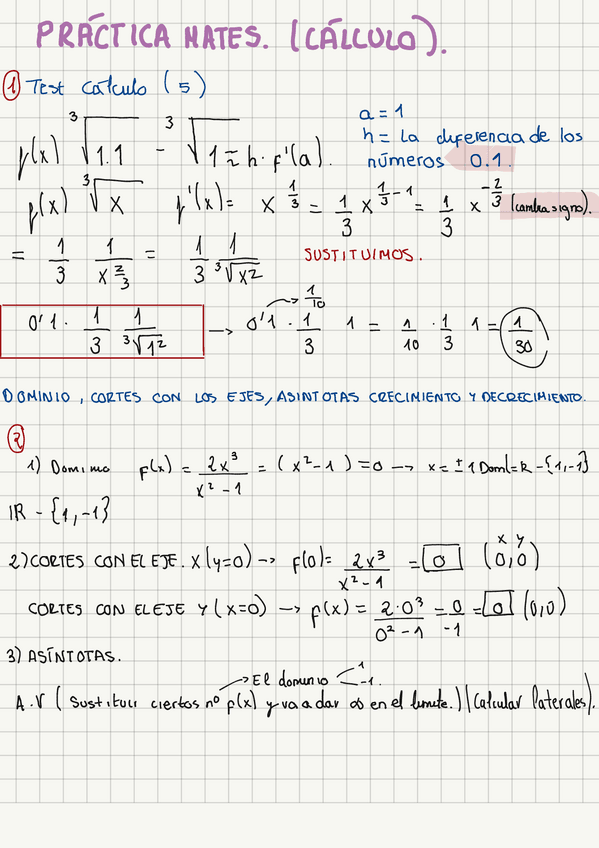 PRÁCTICA MATES. (CÁLCULO).
① Test cálculo (5)
a = 1
h = La diferencia de los números 0.1.
f(x) ∛1.1 - ∛1 ≈ h · f'(a).
f(x) ∛x f'(x) = x^(1/3) = 1/3 x^(1/3 - 1) = 1/3 x^(-2/3) (cambia signo).
= 1/3 1/x^(2/3) = 1/3 1/∛x² SUSTITUIMOS.
0'1 · 1/3 1/∛1² → 0'1 → 1/10 · 1/3 1 = 1/10 · 1/3 1 = 1/30
DOMINIO, CORTES CON LOS EJES, ASINTOTAS CRECIMIENTO Y DECRECIMIENTO.
②
1) Dominio f(x) = 2x³/x² - 1 = (x² - 1) = 0 → x = ± 1 Dom(=R - {1,-1}
IR - {1,-1}
2) CORTES CON EL EJE. X (y=0) → f(0) = 2x³/x² - 1 = 0 x y (0,0)
CORTES CON EL EJE Y (x=0) → f(x) = 2·0³/0² - 1 = 0/-1 = 0 (0,0)
3) ASÍNTOTAS.
→ El dominio 1 -1.
A.V ( Sustituir ciertos nº f(x) y va a dar ∞ en el limite.) (Calcular laterales).